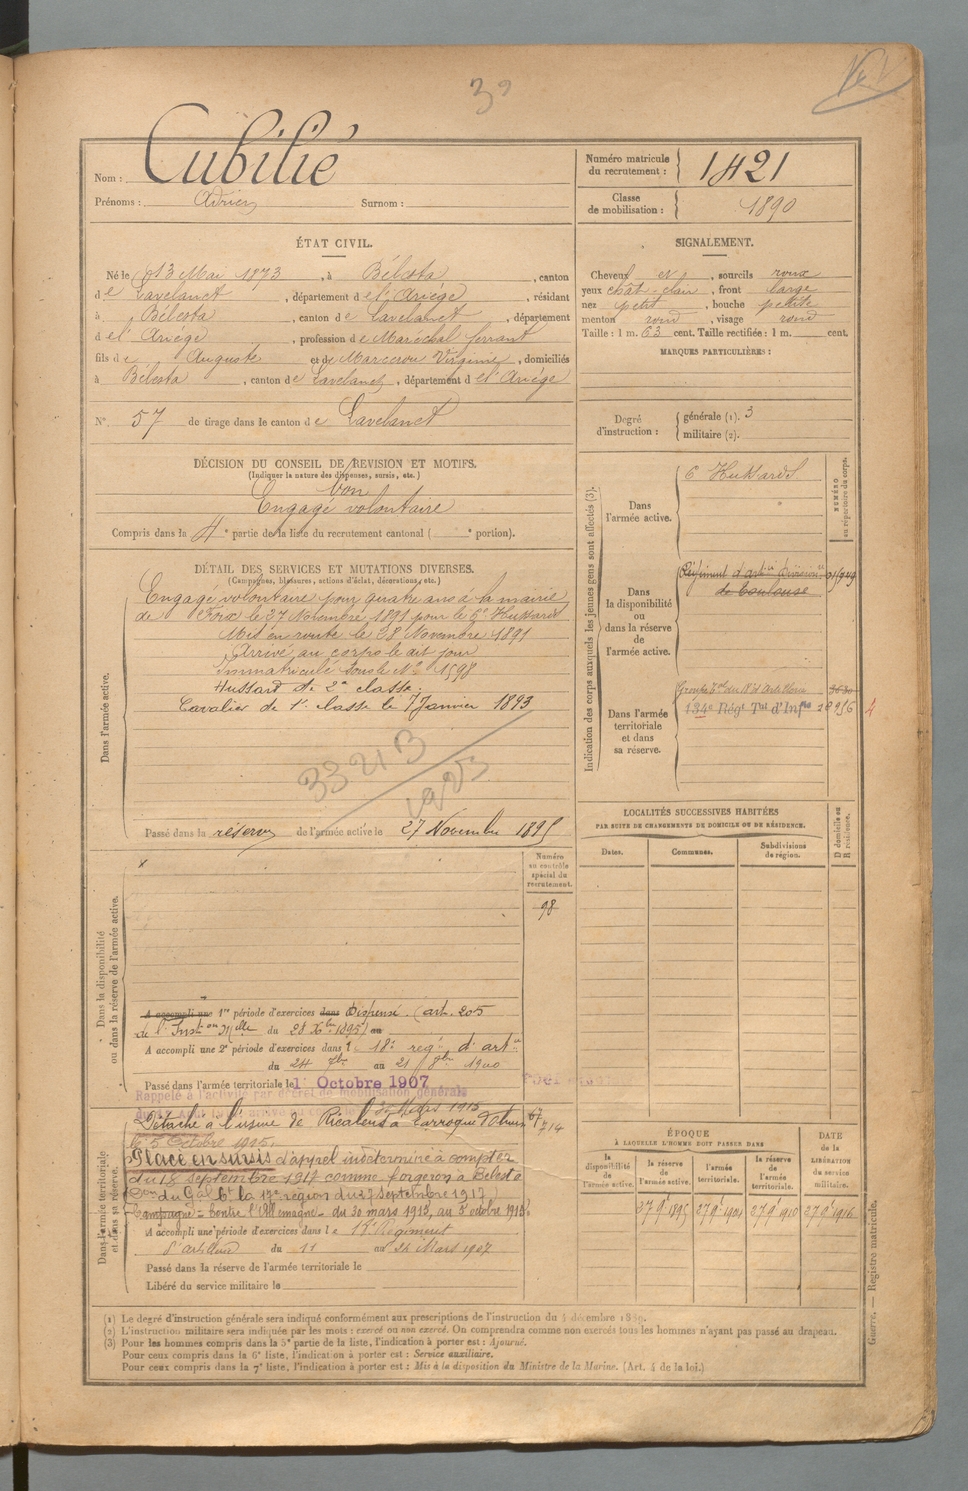 39
Nom : Cubilié
Prénoms : Adrien Surnom :
Numéro matricule
du recrutement : 1421
Classe
de mobilisation : 1890
ÉTAT CIVIL.
Né le 13 Mai 1873, à Bélesta, canton
de Lavelanet, département de l'Ariège, résidant
à Bélesta, canton de Lavelanet, département
de l'Ariège, profession de Maréchal ferrant
fils de Auguste et de Virginie, domiciliés
à Bélesta, canton de Lavelanet, département de l'Ariège
N° 57 de tirage dans le canton de Lavelanet
SIGNALEMENT.
Cheveux et, sourcils roux
yeux chât-clair, front large
nez petit, bouche petite
menton rond, visage rond
Taille : 1 m. 63 cent. Taille rectifiée : 1 m. cent.
MARQUES PARTICULIÈRES :
Degré
d'instruction :
générale (1). 3
militaire (2).
DÉCISION DU CONSEIL DE REVISION ET MOTIFS.
(Indiquer la nature des dispenses, sursis, etc.)
bon
Engagé volontaire
Compris dans la 4e partie de la liste du recrutement cantonal ( e portion).
DÉTAIL DES SERVICES ET MUTATIONS DIVERSES.
(Campagnes, blessures, actions d'éclat, décorations, etc.)
Dans l'armée active.
Engagé volontaire pour quatre ans à la mairie
de Foix le 27 Novembre 1891 pour le 6e Hussards
Mis en route le 28 Novembre 1891
Arrivé au corps le dit jour
Immatriculé sous le N° 1598
Hussard de 2e classe.
Cavalier de 1e classe le 7 Janvier 1893
33213
1923
Passé dans la réserve de l'armée active le 27 Novembre 1895
Indication des corps auxquels les jeunes gens sont affectés (3).
NUMÉRO
au répertoire du corps.
Dans
l'armée active.
6 Hussards
Dans
la disponibilité
ou
dans la réserve
de
l'armée active.
Régiment d'artie Divisionre
de Toulouse
Dans l'armée
territoriale
et dans
sa réserve.
Groupe Tal du 18e d'Artillerie
134e Régt Tal d'Infie 28956
4
LOCALITÉS SUCCESSIVES HABITÉES
PAR SUITE DE CHANGEMENTS DE DOMICILE OU DE RÉSIDENCE.
D domicile ou
R résidence.
Dates. Communes. Subdivisions
de région.
Dans la disponibilité
ou dans la réserve de l'armée active.
Numéro
au contrôle
spécial du
recrutement.
98
A accompli une 1re période d'exercices dans Dispensé. (art. 205
de l'Inston Mlle du 28 Xbre 1895) au
A accompli une 2e période d'exercices dans le 18e rég d'artie
du 24 7bre au 21 8bre 1900
Passé dans l'armée territoriale le 1 Octobre 1907
Rappelé à l'activité par décret de mobilisation générale
30 Mars 1915
Dans l'armée territoriale
et dans sa réserve.
Détaché à l'usine de à Larroque d'Olmes
le 5 Octobre 1915.
Placé en sursis d'appel indéterminé à compter
du 18 septembre 1917 comme forgeron à Bélesta
(Don du Gal Ct la 17e région du 27 septembre 1917)
Campagne = contre l'Allemagne - du 30 mars 1915, au 5 octobre 1915.
A accompli une période d'exercices dans le 18e Régiment
d'artillerie du 11 au 24 Mars 1907
Passé dans la réserve de l'armée territoriale le
Libéré du service militaire le
ÉPOQUE
À LAQUELLE L'HOMME DOIT PASSER DANS
DATE
de la
LIBÉRATION
du service
militaire.
la
disponibilité
de
l'armée active.
la réserve
de
l'armée active.
l'armée
territoriale.
la réserve
de l'armée
territoriale.
27 9e 1895 27 9e 1901 27 9e 1910 27 9e 1916
(1) Le degré d'instruction générale sera indiqué conformément aux prescriptions de l'instruction du 4 décembre 1889.
(2) L'instruction militaire sera indiquée par les mots : exercé ou non exercé. On comprendra comme non exercés tous les hommes n'ayant pas passé au drapeau.
(3) Pour les hommes compris dans la 5e partie de la liste, l'indication à porter est : Ajourné.
Pour ceux compris dans la 6e liste, l'indication à porter est : Service auxiliaire.
Pour ceux compris dans la 7e liste, l'indication à porter est : Mis à la disposition du Ministre de la Marine. (Art. 4 de la loi.)
Guerre. — Registre matricule.